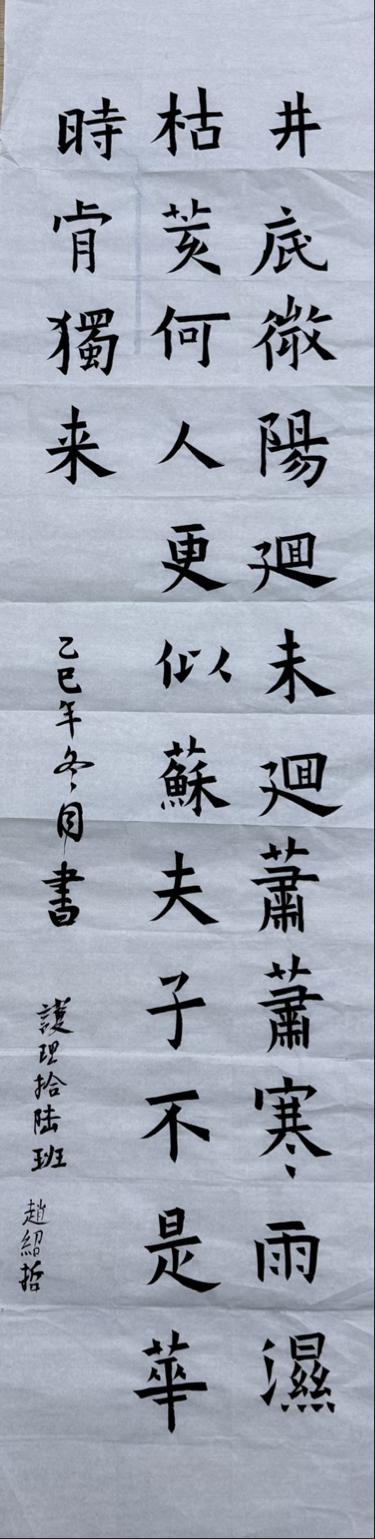 井底微陽廻未廻蕭蕭寒雨濕
枯荄何人更似蘇夫子不是華
時肯獨来
乙巳年冬月書
護理拾陆班
趙紹哲